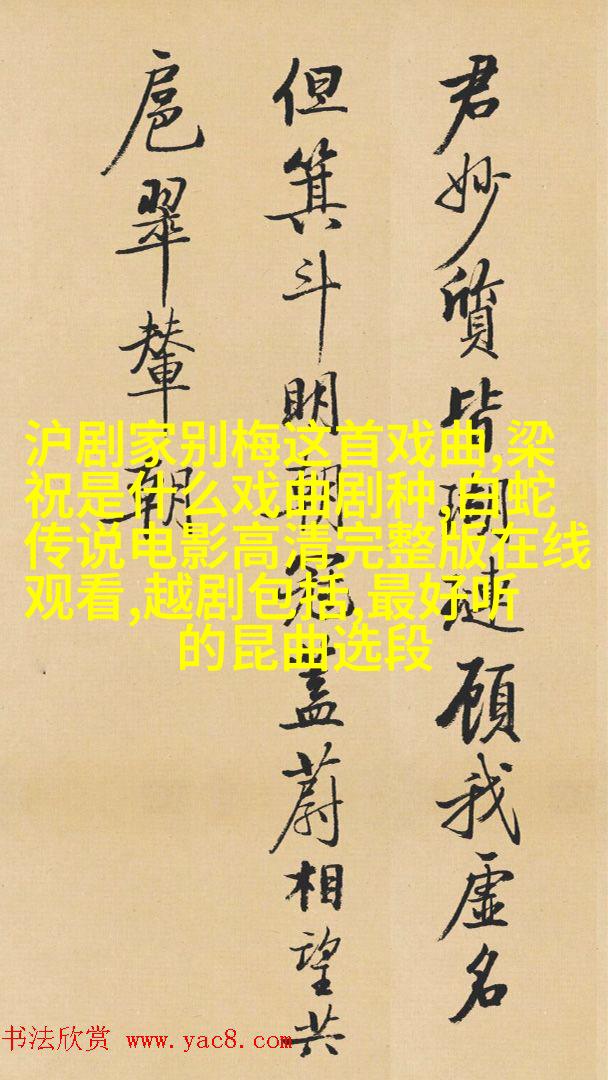 君妙質皆瑚璉顧我虛名
但箕斗明朝冠蓋蔚相望共
扈翠輦朝
沪剧家别梅这首戏曲,梁
祝是什么戏曲剧种,白蛇
传说电影高清完整版在线
观看,越剧包括,最好听
的昆曲选段
书法欣赏 www.yac8.com